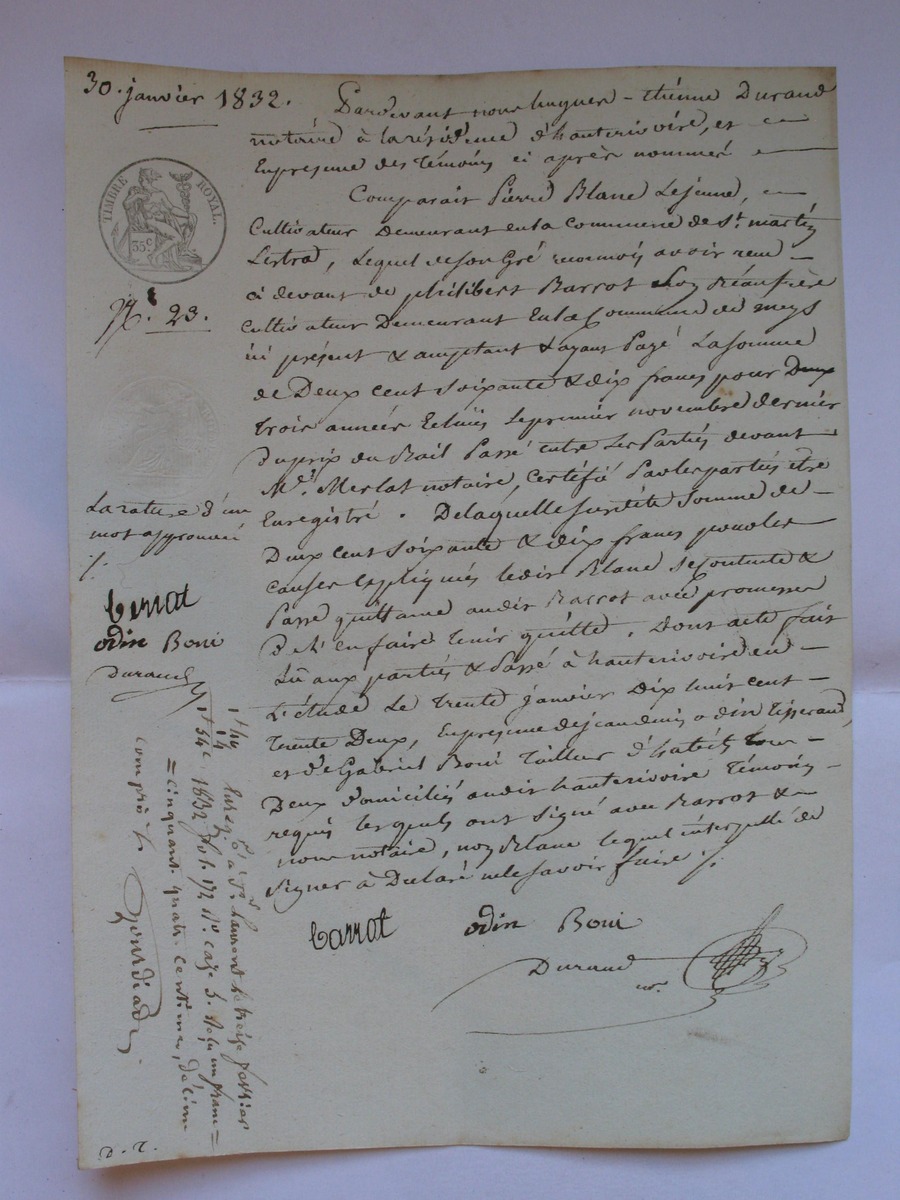 30. janvier 1832.
Pardevant nous hugues-étienne Durand
notaire à la résidence d'hauterivoire, et
En presence des témoins ci après nommés
Comparait Pierre Blanc Lejeune,
Cultivateur Demeurant en la commune de St. martin
Lestra, Lequel de son Gré reconnois avoir reçu
ci devant de philibert Barrot son Béaufrère
cultivateur Demeurant En la Commune de meys
ici présent & acceptant & ayant Payé La somme
de Deux cent soixante & dix francs pour Deux
trois années Echues le premier novembre dernier
Du prix du Bail Passé entre les Parties devant
Me. Merlat notaire, certifié Par les parties être
Enregistré. De laquelle susdite somme de
Deux cent soixante & dix francs pour les
causes Expliquées ledit Blanc se contente &
Passe quittance audit Barrot avec promesse
De l'en faire tenir quitte. Dont acte fait
Lû aux parties & Passé à hauterivoire en
L'étude Le trente janvier Dix huit cent
trente Deux, En presence de jean denis odin tisserand
et de Gabriel Boni Tailleur d'habits tous
Deux domiciliés audit hauterivoire Témoins
requis lesquels ont signé avec Barrot &
nous notaire, non Blanc lequel interpellé de
signer à Déclaré ne le savoir faire ./.
barrot odin Boni
Durand
nre.
TIMBRE ROYAL.
35c.
No. 23.
La rature d'un
mot approuvée
./.
barrot
odin Boni
Durand
Enregé à St. Laurent le treize février
1832 fo. 172 Ro. case 3. reçu un franc
= cinquante quatre centimes, décime
compris ./.
D. r.